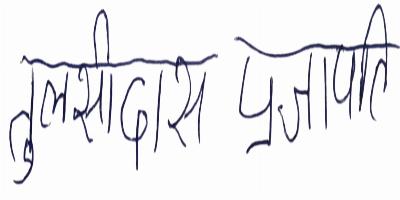 तुलसीदास प्रजापति